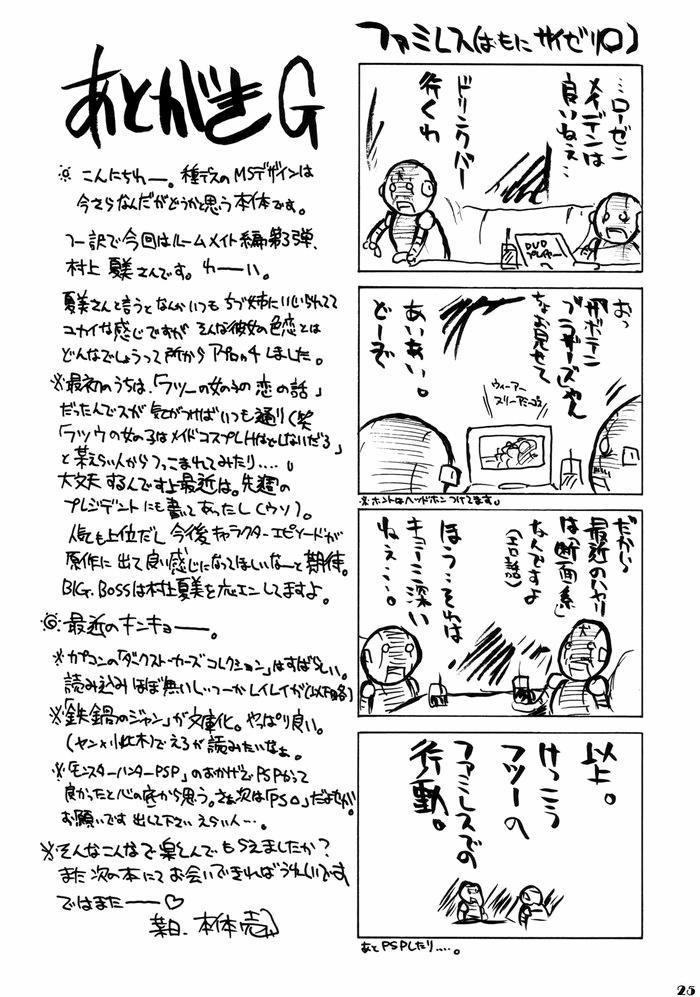 あとがきG
こんにちわー。種デスのMSデザインは
今さらなんだがどうかと思う本体です。
つー訳で今回はルームメイト編第3弾、
村上夏美さんです。わーい。
夏美さんと言うとなんかいつもちづ姉にいじられてて
ユカイな感じですが そんな彼女の色恋とは
どんなでしょうって所からアプローチしました。
※最初のうちは、「フツーの女の子の恋の話」
だったんでスが 気がつけばいつも通り(笑
「フツウの女の子はメイドコスプレHはとしないだろ」
と某えらい人からつっこまれてみたり‥‥。
大丈夫 するんですよ最近は。先週の
プレジデントにも書いてあったし(ウソ)。
人気も上位だし 今後キャラクターエピソードが
原作に出て良い感じになってほしいなーと期待。
BIG. BOSSは村上夏美を応エンしてますよ。
◎最近のキンキョー。
※カプコンの「ダークストーカーズコレクション」はすばらしい。
読み込みほぼ無いしっつーかレイレイが(以下略)
※「鉄鍋のジャン」が文庫化。やっぱり良い。
(ヤン×小此木)でえろが読みたいなぁ。
※「モンスターハンターPSP」のおかげでPSPかって
良かったと心の底から思う。さぁ次は「PSO」だよせが
お願いです 出して下さい えらい人…。
※そんなこんなで楽しんでもらえましたか?
また次の本にてお会いできればうれしいです
ではまたーー♡
某日. 本体売
ファミレス(はもにサイゼリ○)
…ローゼン
メイデンは
良いねぇ…
ドリンクバー
行くわ
DVD
プレイヤー
へ
おっ
「サボテン
ブラザーズ」じゃん
ちょお見せて
あいあい。
どーぞ
ウィーアー
スリーアミーゴス
※ホントはヘッドホンつけてます。
だから
最近のハヤリ
は「断面系」
なんですよ
(エロ話)
ほう‥それは
キョーミ深い
ねぇ…。
以上。
けっこう
フツーの
ファミレスでの
行動。
あとPSPしたり‥‥。
25